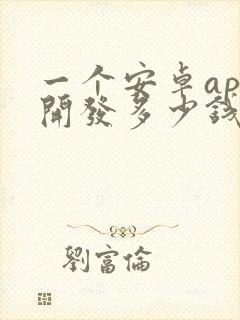 一个安卓ap
開發多少錢
劉富倫